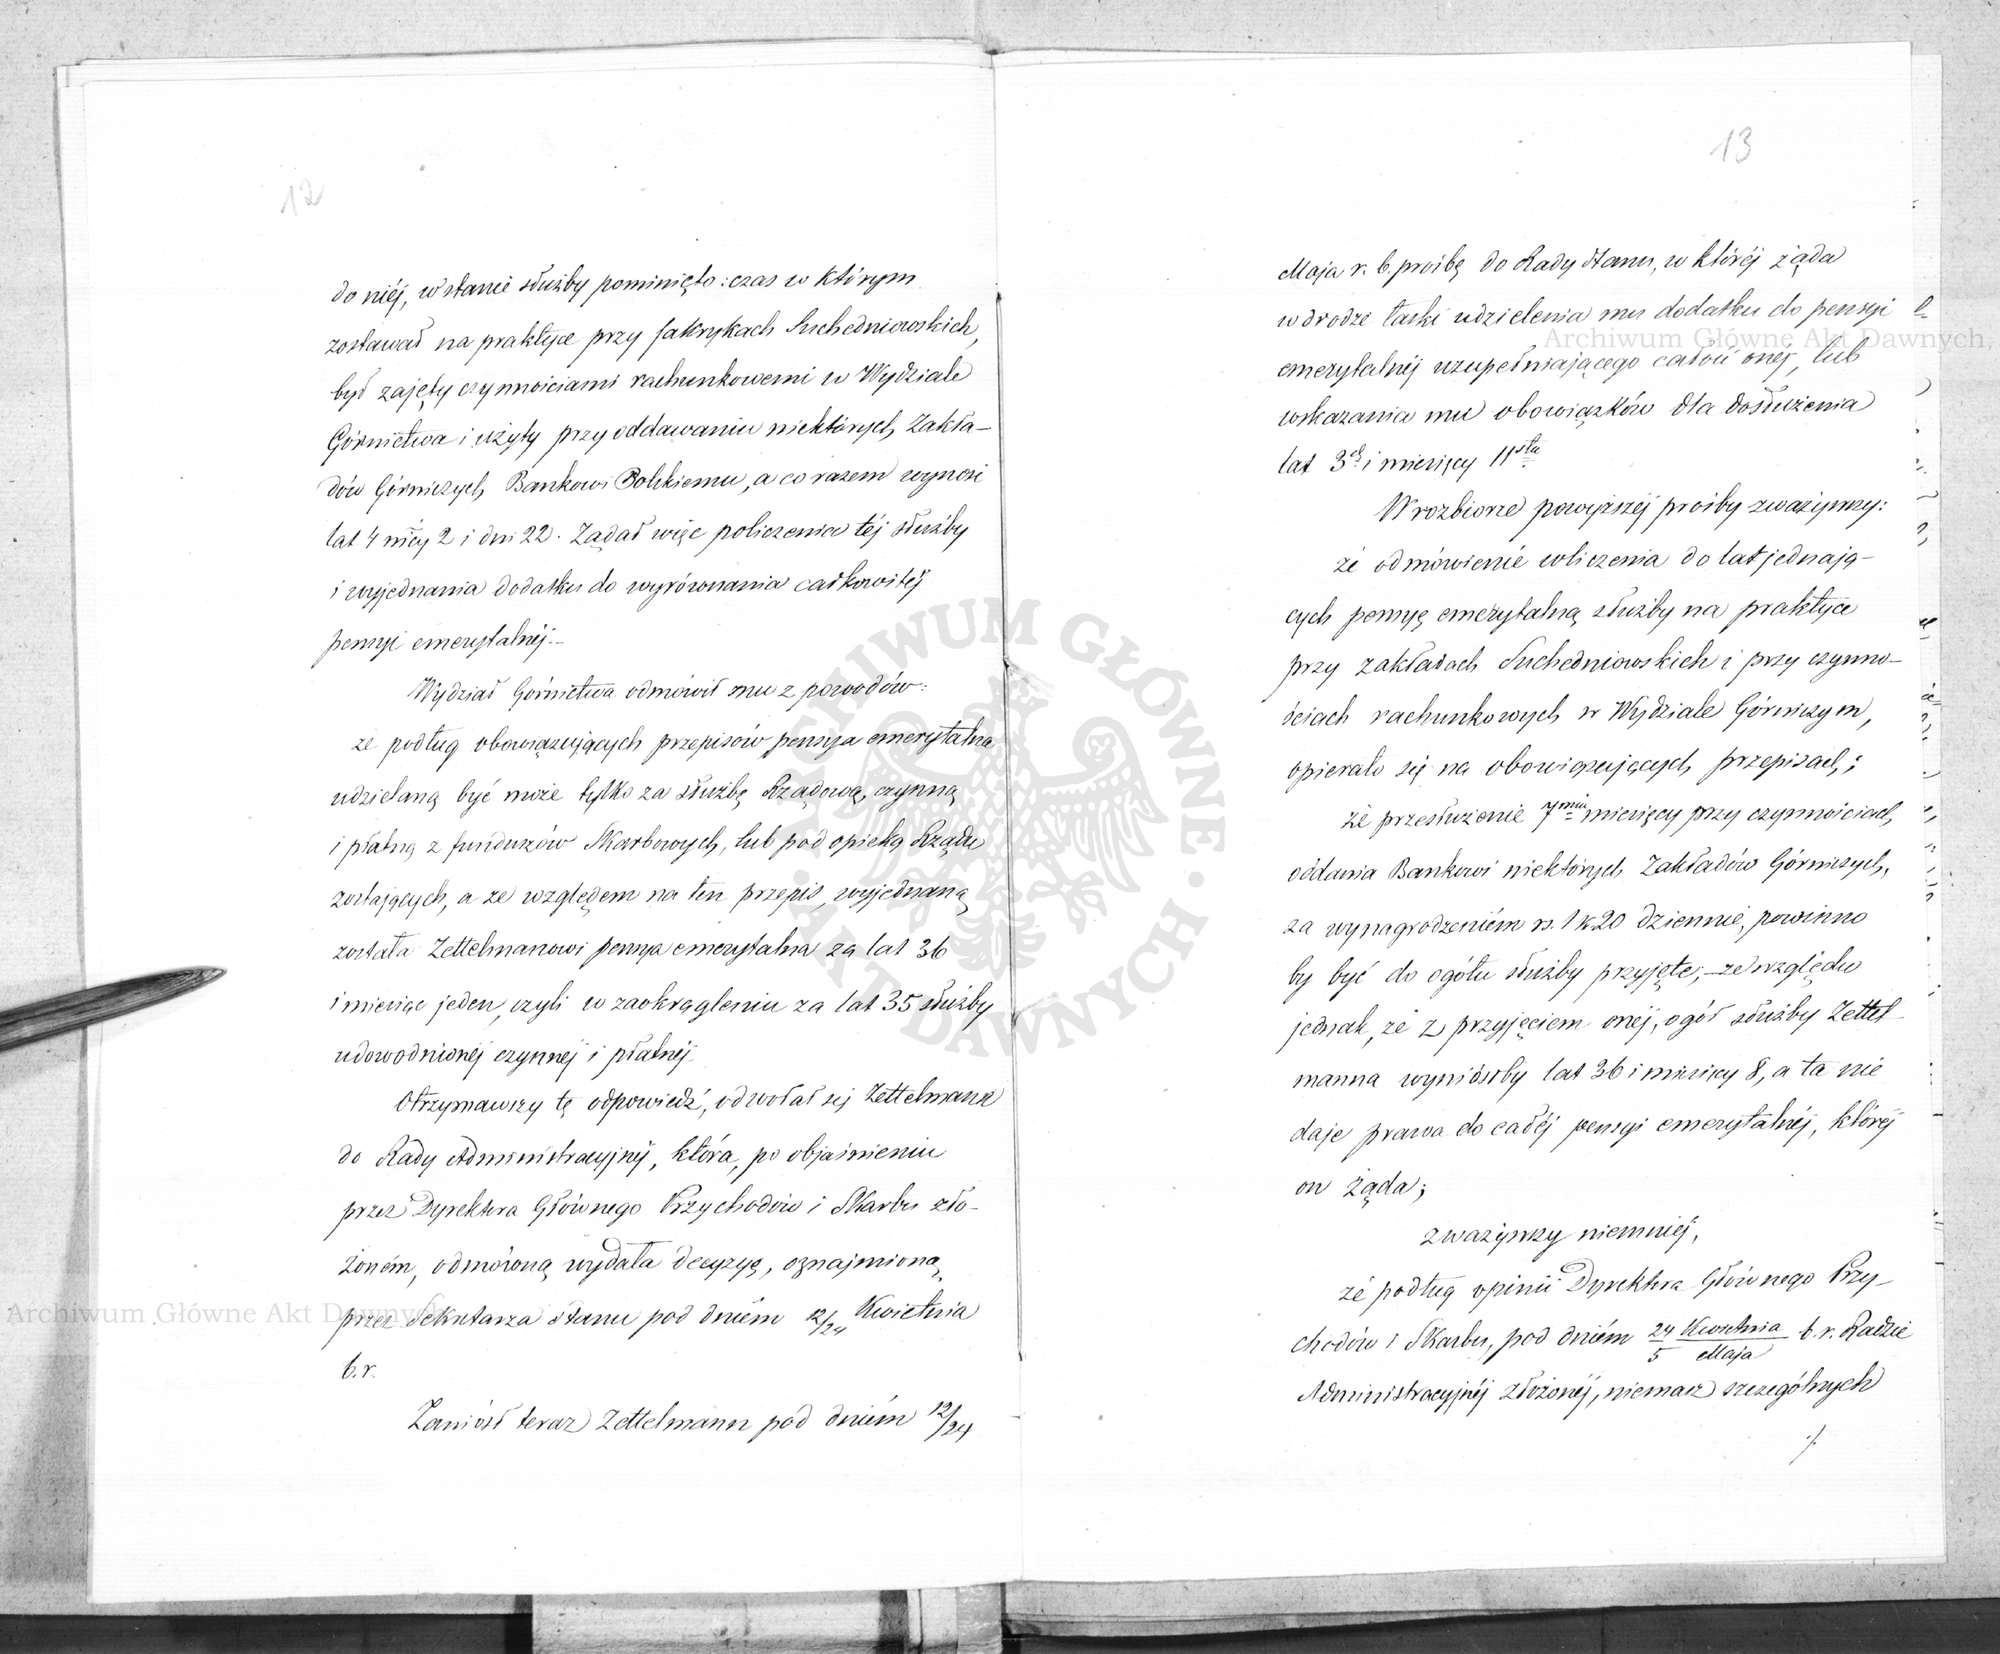 12
do niéj, w stanie służby pominięto: czas w którym
zostawał na praktyce przy fabrykach Suchedniowskich,
był zajęty czynnościami rachunkowemi w Wydziale
Górnictwa i użyty przy oddawaniu niektórych Zakła-
dów Górniczych Bankowi Polskiemu, a co razem wynosi
lat 4 mcy 2 i dni 22. Żądał więc policzenia téj służby
i wyjednania dodatku do wyrównania całkowitéj
pensyi emerytalnéj.-
Wydział Górnictwa odmówił mu z powodów:
że podług obowiązujących przepisów pensya emerytalna
udzielaną być może tylko za służbę Rządową, czynną
i płatną z funduszów Skarbowych, lub pod opieką Rządu
zostających, a ze względem na ten przepis, wyjednaną
została Zettelmanowi pensya emerytalna za lat 36
i miesiąc jeden, czyli w zaokrągleniu za lat 35 służby
udowodnionéj czynnéj i płatnéj.
Otrzymawszy tę odpowiedź, odwołał się Zettelmann
do Rady Administracyjnéj, która, po objaśnieniu
przez Dyrektora Głównego Przychodów i Skarbu zło-
żoném, odmówną wydała decyzyę, oznajmioną
przez Sekretarza Stanu pod dniém 12/24 Kwietnia
b.r.
Zaniósł teraz Zettelmann pod dniém 12/24
13
Maja r. b. prośbę do Rady Stanu, w któréj żąda
w drodze łaski udzielenia mu dodatku do pensyi
emerytalnéj uzupełniającego całość onéj, lub
wskazania mu obowiązków dla dosłużenia
lat 3ch i miesięcy 11stu
W rozbiorze powyższéj prośby zważywszy:
że odmówienie wliczenia do lat jednają-
cych pensyę emerytalną służby na praktyce
przy zakładach Suchedniowskich i przy czynno-
ściach rachunkowych w Wydziale Górniczym,
opierało się na obowiązujących przepisach;
że przesłużenie 7miu miesięcy przy czynnościach
oddania Bankowi niektórych Zakładów Górniczych,
za wynagrodzeniém rs. 1 k 20 dziennie, powinno
by być do ogółu służby przyjęte, - ze względu
jednak, że z przyjęciem onéj, ogół służby Zettel-
manna wyniósłby lat 36 i miesięcy 8, a ta nie
daje prawa do całéj pensyi emerytalnéj, któréj
on żąda;
zważywszy niemniéj,
że podług opinii Dyrektora Głównego Przy-
chodów i Skarbu, pod dniém 24 Kwietnia / 5 Maja b. r. Radzie
Administracyjnéj złożonéj, niemasz szczególnych
./.
Archiwum Główne Akt Dawnych,
Archiwum Główne Akt Dawnych
ARCHIWUM GŁÓWNE · AKT DAWNYCH ·